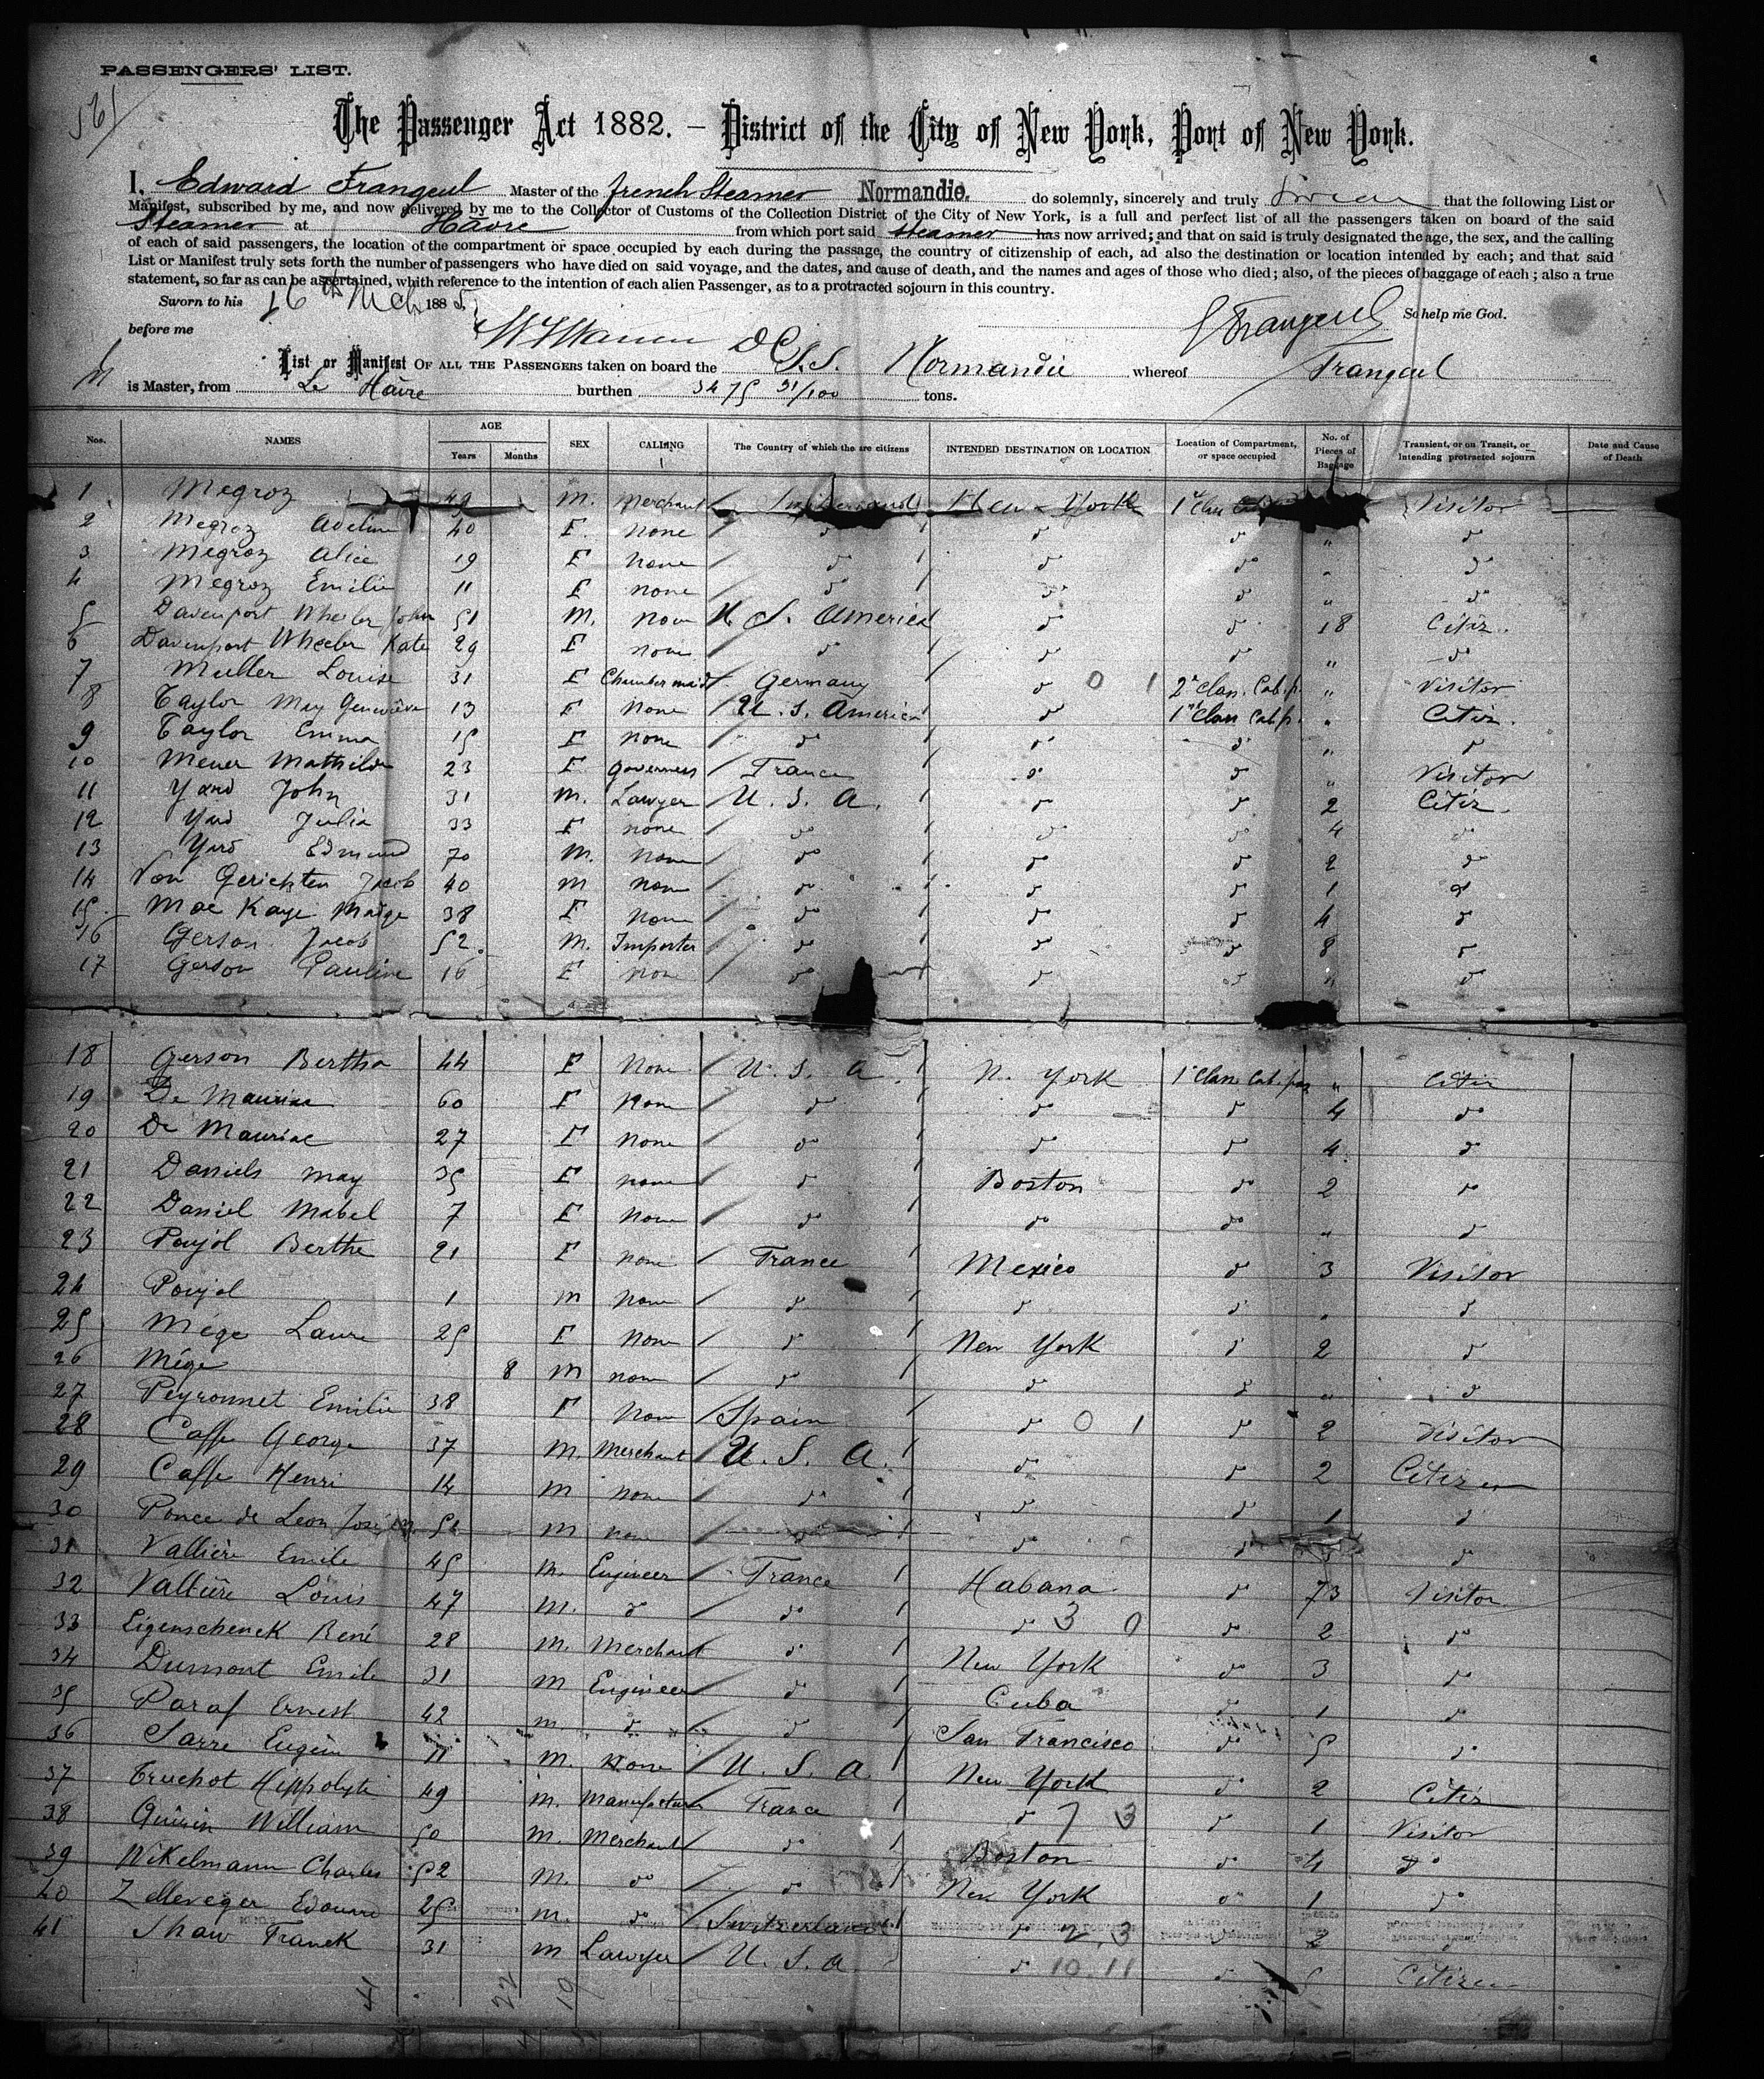 PASSENGERS' LIST.
561
The Passenger Act 1882. – District of the City of New York, Port of New York.
I, Edward Frangeul Master of the french Steamer Normandie. do solemnly, sincerely and truly that the following List or
Manifest, subscribed by me, and now delivered by me to the Collector of Customs of the Collection District of the City of New York, is a full and perfect list of all the passengers taken on board of the said
Steamer at Havre from which port said steamer has now arrived; and that on said is truly designated the age, the sex, and the calling
of each of said passengers, the location of the compartment or space occupied by each during the passage, the country of citizenship of each, ad also the destination or location intended by each; and that said
List or Manifest truly sets forth the number of passengers who have died on said voyage, and the dates, and cause of death, and the names and ages of those who died; also, of the pieces of baggage of each; also a true
statement, so far as can be ascertained, whith reference to the intention of each alien Passenger, as to a protracted sojourn in this country.
Sworn to his 16th Mch 1885 So help me God.
before me Frangeul
List or Manifest OF ALL THE PASSENGERS taken on board the S.S. Normandie whereof Frangeul
is Master, from Le Hâvre burthen 3475 31/100 tons.
Nos. NAMES AGE Years Months SEX CALLING The Country of which the are citizens INTENDED DESTINATION OR LOCATION Location of Compartment, or space occupied No. of Pieces of Baggage Transient, or on Transit, or intending protracted sojourn Date and Cause of Death
1 Megroz 49 M. Merchant New York 1r Class Visitor
2 Megroz 40 F. none do do do " do
3 Megroz Alice 19 F none do do do " do
4 Megroz Emilie 11 F none do do do " do
5 Davenport Wheeler John 51 M. none U. S. America do do 18 Citiz.
6 Davenport Wheeler Kate 29 F none do do do " do
7 Muller Louise 31 F Chambermaid Germany do 0 1 2d Class. Cab. p. " Visitor
8 Taylor May Geneviève 13 F none U. S. America do 1st Class Cab p. " Citiz.
9 Taylor Emma 15 F none do do do " do
10 Mathilde 23 F governess France do do " Visitor
11 Yard John 31 M. Lawyer U. S. A. do do 2 Citiz.
12 Yard Julia 33 F none do do do 4 do
13 Yard Edmund 70 M. none do do do 2 do
14 Von Gerichten Jacob 40 M none do do do 1 do
15 Mac Kaye Madge 38 F none do do do 4 do
16 Gerson Jacob 52 M. Importer do do do 8 do
17 Gerson Pauline 16 F none do do do " do
18 Gerson Bertha 44 F None U. S. A. N. York 1r Class Cab. pas " Citiz
19 De Mauriac 60 F None do do do 4 do
20 De Mauriac 27 F none do do do 4 do
21 Daniels May 35 F none do Boston do 2 do
22 Daniel Mabel 7 F none do do do " do
23 Poujol Berthe 21 F none France Mexico do 3 Visitor
24 Poujol 1 M none do do do " do
25 Mége Laure 25 F none do New York do 2 do
26 Mége 8 M none do do do " do
27 Peyronnet Emilie 38 F none Spain do 0 1 do 2 Visitor
28 Caffe George 37 M. Merchant U. S. A. do do 2 Citizen
29 Caffe Henri 14 M none do do do 1 do
30 Ponce de Leon M none do do do do
31 Vallière Emile 45 M. Engineer France Habana do 73 Visitor
32 Vallière Louis 47 M. do do do 3 0 do 2 do
33 Eigenschenck René 28 M. Merchant do New York do 3 do
34 Dumont Emile 31 M Engineer do Cuba do 1 do
35 Paraf Ernest 42 M. do do San Francisco do 5 do
36 Sarre Eugène 11 M. None U. S. A. New York do 2 Citiz
37 Truchot Hippolyte 49 M. Manufacturer France do 7 3 do 1 Visitor
38 Quirin William 50 M. Merchant do Boston do 4 do
39 Wikelmann Charles 52 M. do do New York do 1 do
40 Zellweger Edouard 25 M. do Switzerland do 2.3 do 2 do
41 Shaw Franck 31 M Lawyer U. S. A. do 10.11 do Citizen
41 22 19